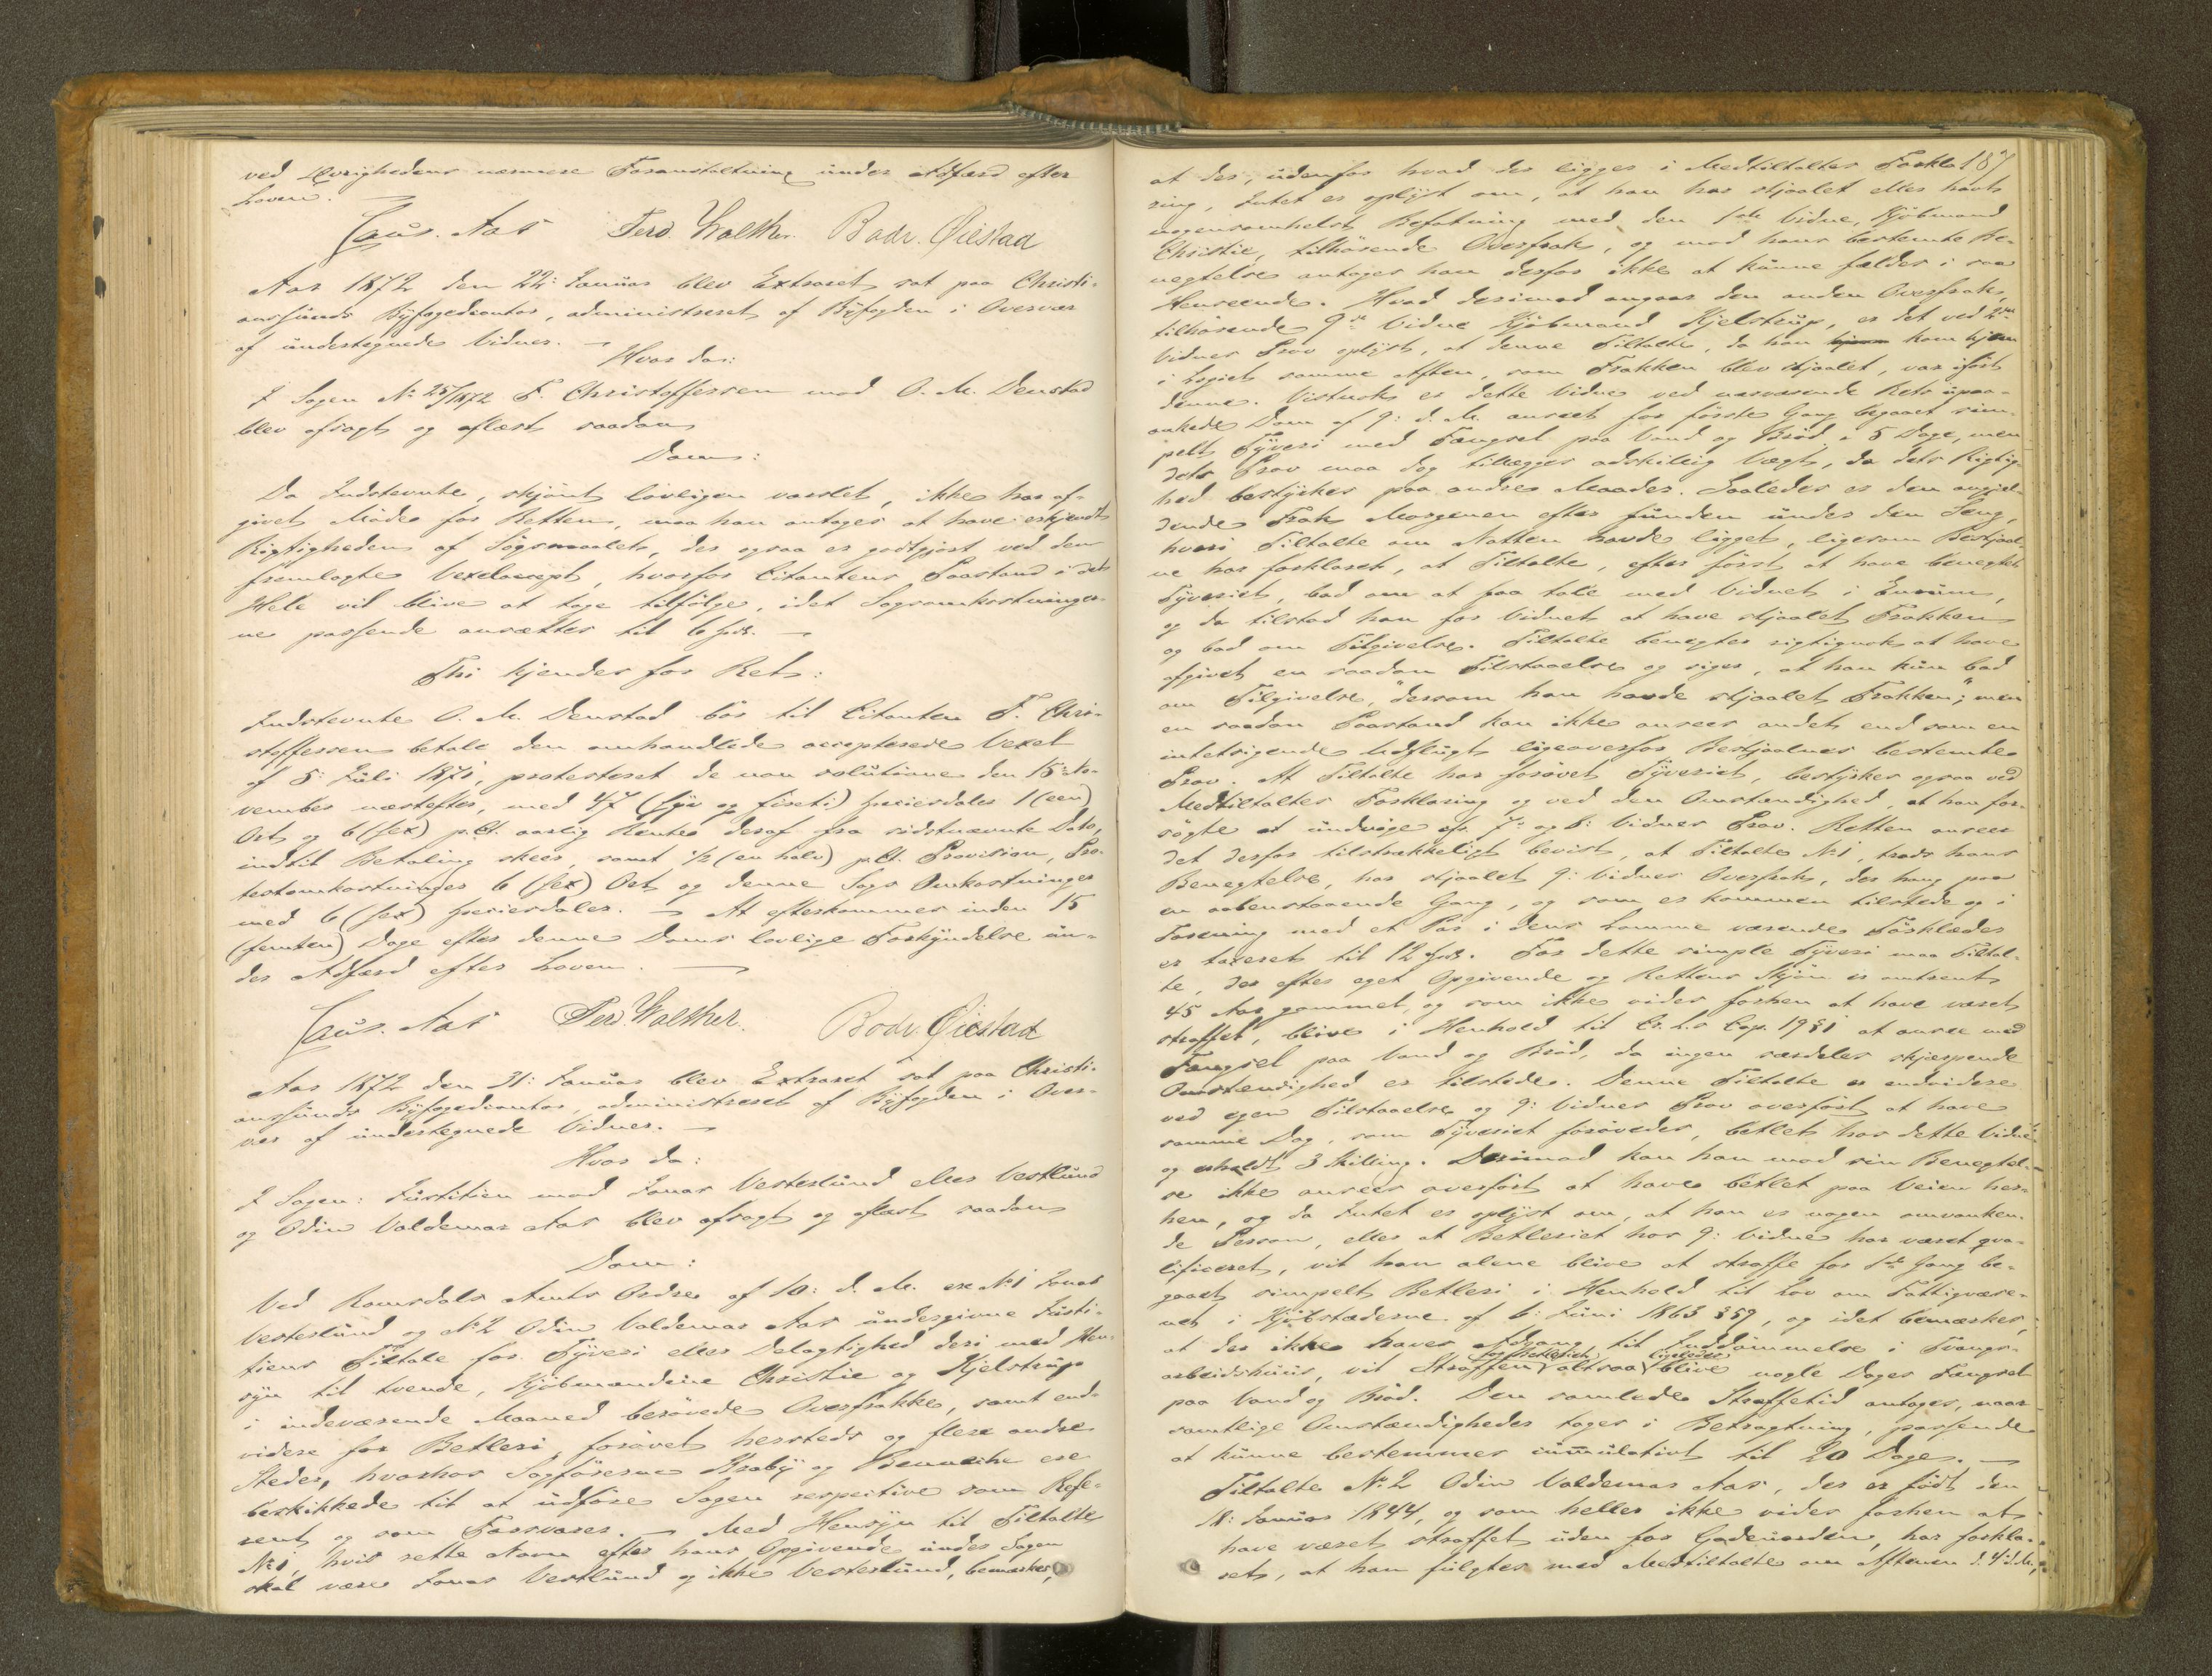 ved Øvrighedens nærmere Foranstaltning under Adfærd efter
Loven.
Claus. Aas Ferd. Walther. Bodv. Øiestad
Aar 1872 den 22: Januar blev Extraret sat paa Christi-
anssunds Byfogedcontor, administreret af Byfogden i Overvær
af undertegnede Vidner. —
Hvor da:
I Sagen No 25/1872 F. Christoffersen mod O. M. Denstad
blev afsagt og oplæst saadan
Dom:
Da Indstevnte, skjönt lovligen varslet, ikke har af-
givet Möde for Retten, maa han antages at have erkjendt
Rigtigheden af Sögsmaalet, der ogsaa er godtgjort ved den
fremlagte Vexelaccept, hvorfor Citantens Paastand i det
Hele vil blive at tage tilfölge, idet Sagsomkostninger-
ne passende ansættes til 6 Spd. —
Thi kjendes for Ret:
Indstevnte O. M. Denstad bör til Citanten F. Chri-
stoffersen betale den omhandlede accepterede Vexel
af 5: Juli 1871, protesteret de non solutione den 15: No-
vember næstefter, med 47 (syv og fireti) Speciesdaler 1 (een)
Ort og 6 (sex) p.Ct. aarlig Renter deraf fra sidstnævnte Dato,
indtil Betaling skeer, samt 1/2 (en halv) p.Ct. Provision, Pro-
testomkostninger 6 (sex) Ort og denne Sags Omkostninger
med 6 (sex) Speciesdaler. — At efterkommes inden 15
(femten) Dage efter denne Doms lovlige Forkyndelse un-
der Adfærd efter Loven. —
Claus. Aas Ferd. Walther. Bodv. Øiestad
Aar 1872 den 31: Januar blev Extraret sat paa Christi-
anssunds Byfogedcontor, administreret af Byfogden i Over-
vær af undertegnede Vidner. —
Hvor da:
I Sagen: Justitien mod Jonas Vesterlund eller Vestlund
og Odin Valdemar Aas blev afsagt og oplæst saadan
Dom:
Ved Romsdals Amts Ordre af 10: d. M. ere No 1 Jonas
Vesterlund og No 2 Odin Valdemar Aas undergivne Justi-
tiens Tiltale for Tyveri eller Delagtighed deri med Hen-
syn til tvende, Kjöbmændene Christie og Kjelstrup
i indeværende Maaned berövede Overfrakke, samt end-
videre for Betleri, forövet hersteds og flere andre
Steder, hvorhos Sagförerne Braby og ere
beskikkede til at udföre Sagen respective som Refe-
rent og som Forsvarer. — Med Hensyn til Tiltalte
No 1, hvis rette Navn efter hans Opgivende under Sagen
skal være Jonas Vestlund og ikke Vesterlund, bemærkes,
187
at der, udenfor hvad der ligger i Medtiltaltes Forkla-
ring, Intet er oplyst om, at han har stjaalet eller havt
nogensomhelst Befatning med den 1ste Vidne, Kjöbmand
Christie, tilhörende Overfrak, og mod hans bestemte Be-
negtelse antages han derfor ikke at kunne fældes i saa
Henseende. Hvad derimod angaar den anden Overfrak,
tilhörende 9de Vidne Kjöbmand Kjelstrup, er det ved 2det
Vidnes Prov oplyst, at denne Tiltalte, da han kom hjem
i Logiet samme Aften, som Frakken blev stjaalet, var iført
denne. Vistnok er dette Vidne ved nærværende Rets upaa-
ankede Dom af 9: d. M. anseet for förste Gang begaaet sim-
pelt Tyveri med Fængsel paa Vand og Bröd i 5 Dage, men
dets Prov maa dog tillægges adskillig Vægt, da dets Rigtig-
hed bestyrkes paa andre Maader. Saaledes er den angjæl-
dende Frak Morgenen efter funden under den Seng,
hvori Tiltalte om Natten havde ligget, ligesom Bestjaal-
ne har forklaret, at Tiltalte, efter först at have benegtet
Tyveriet, bad om at faa tale med Vidnet i Enrum,
og da tilstod han for Vidnet at have stjaalet Frakken
og bad om Tilgivelse. Tiltalte benegter rigtignok at have
afgivet en saadan Tilstaaelse og siger, at han kun bad
om Tilgivelse, "dersom han havde stjaalet Frakken", men
en saadan Paastand kan ikke ansees andet end som en
intetsigende Udflugt ligeoverfor Bestjaalnes bestemte
Prov. At Tiltalte har forövet Tyveriet, bestyrkes ogsaa ved
Medtiltaltes Forklaring og ved den Omstændighed, at han for-
sögte at undvige cfr. 7: og 8: Vidnes Prov. Retten anseer
det derfor tilstrækkeligt bevist, at Tiltalte No 1, trods hans
Benegtelse, har stjaalet 9: Vidnes Overfrak, der hang paa
en aabenstaaende Gang, og som er kommen tilstede og i
Forening med et Par i dens Lomme værende Törklæder
er taxeret til 12 Spd. For dette simple Tyveri maa Tiltal-
te, der efter eget Opgivende og Rettens Skjön er omtrent
45 Aar gammel, og som ikke vides forhen at have været
straffet, blive i Henhold til Cr. L.s Cap. 19 § 1 at ansee med
Fængsel paa Vand og Bröd, da ingen særdeles skjærpende
Omstændighed er tilstede. Denne Tiltalte er endvidere
ved egen Tilstaaelse og 9: Vidnes Prov overført at have
samme Dag, som Tyveriet forövedes, betlet hos dette Vidne
og erholdt 3 Skilling. Derimod kan han mod sin Benegtel-
se ikke ansees overført at have betlet paa Veien her-
hen, og da Intet er oplyst om, at han er nogen omvanken-
de Person, eller at Betleriet hos 9: Vidne har været qva-
lificeret, vil han alene blive at straffe for 1ste Gang be-
gaaet simpelt Betleri i Henhold til Lov om Fattigvæse-
net i Kjöbstæderne af 6: Juni 1863 § 59, og idet bemærkes,
at der ikke haves Adgang til Inddömmelse i Tvangs-
arbeidshuus, vil Straffen for Betleriet altsaa ligeledes blive nogle Dages Fængsel
paa Vand og Bröd. Den samlede Straffetid antages, naar
samtlige Omstændigheder tages i Betragtning, passende
at kunne bestemmes cumulativt til 20 Dage. —
Tiltalte No 2 Odin Valdemar Aas, der er födt den
18: Januar 1844, og som heller ikke vides forhen at
have været straffet uden for Gadeuorden, har forkla-
ret, at han fulgtes med Medtiltalte om Aftenen d. 4 d. M.,